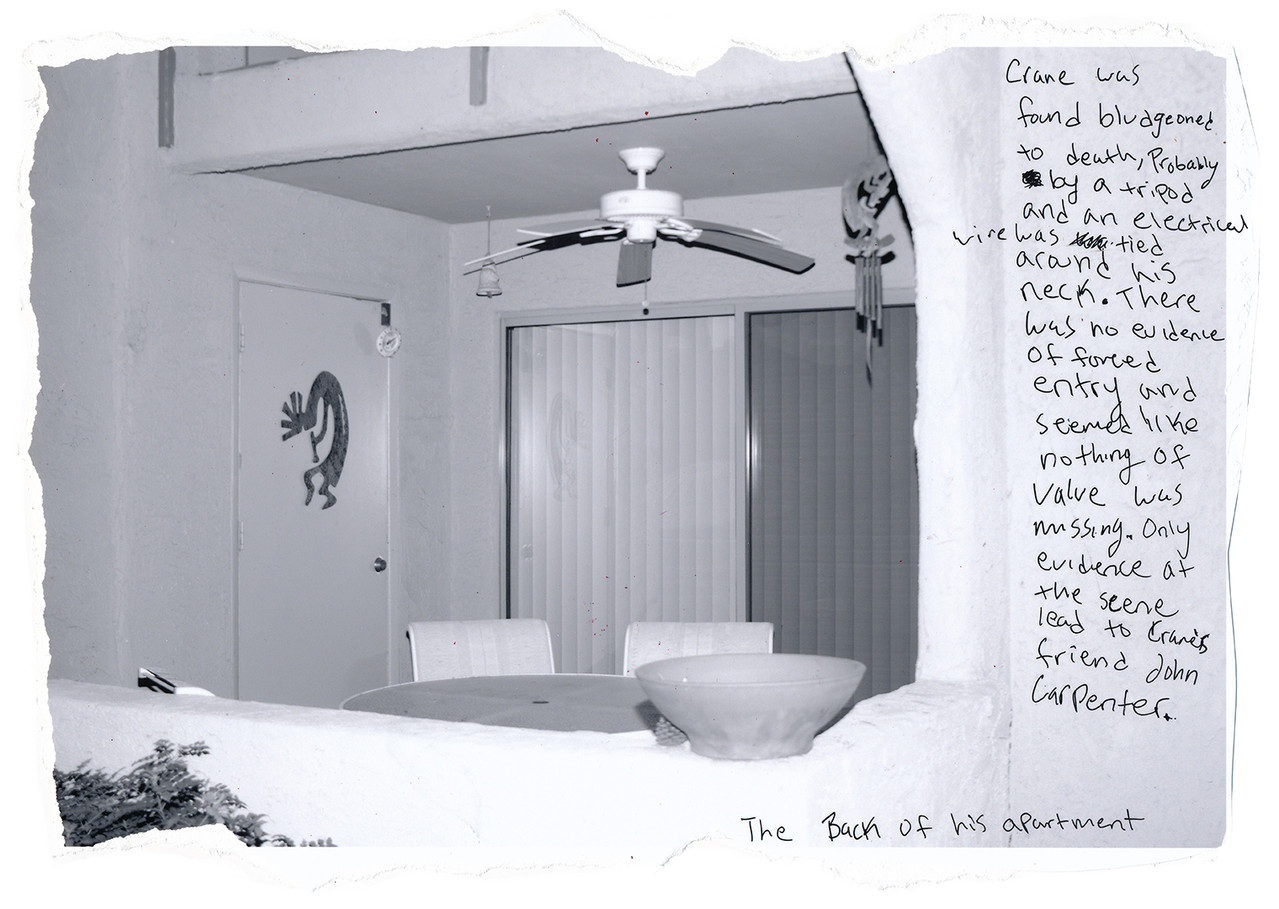 Crane was
found bludgeoned
to death, Probably
by a tripod
and an electrical
wire was tied
around his
neck. There
was no evidence
of forced
entry and
seemed like
nothing of
value was
missing. Only
evidence at
the scene
lead to Crane's
friend John
Carpenter.
The Back of his apartment